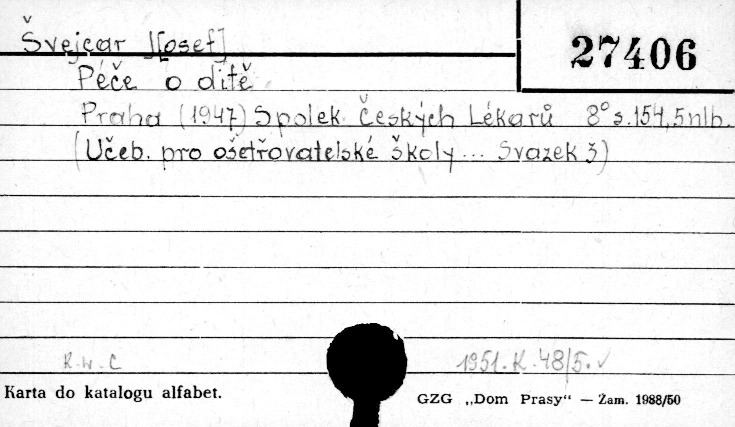 Švejcar J[osef]
27406
Péče o dítě
Praha (1947) Spolek Českých Lékarů 8° s.154,5nlb.
(Učeb. pro ošetřovatelské školy... Svazek 3)
R.W.C 1951.K.48/5.✓
Karta do katalogu alfabet.
GZG „Dom Prasy“ — Zam. 1988/50